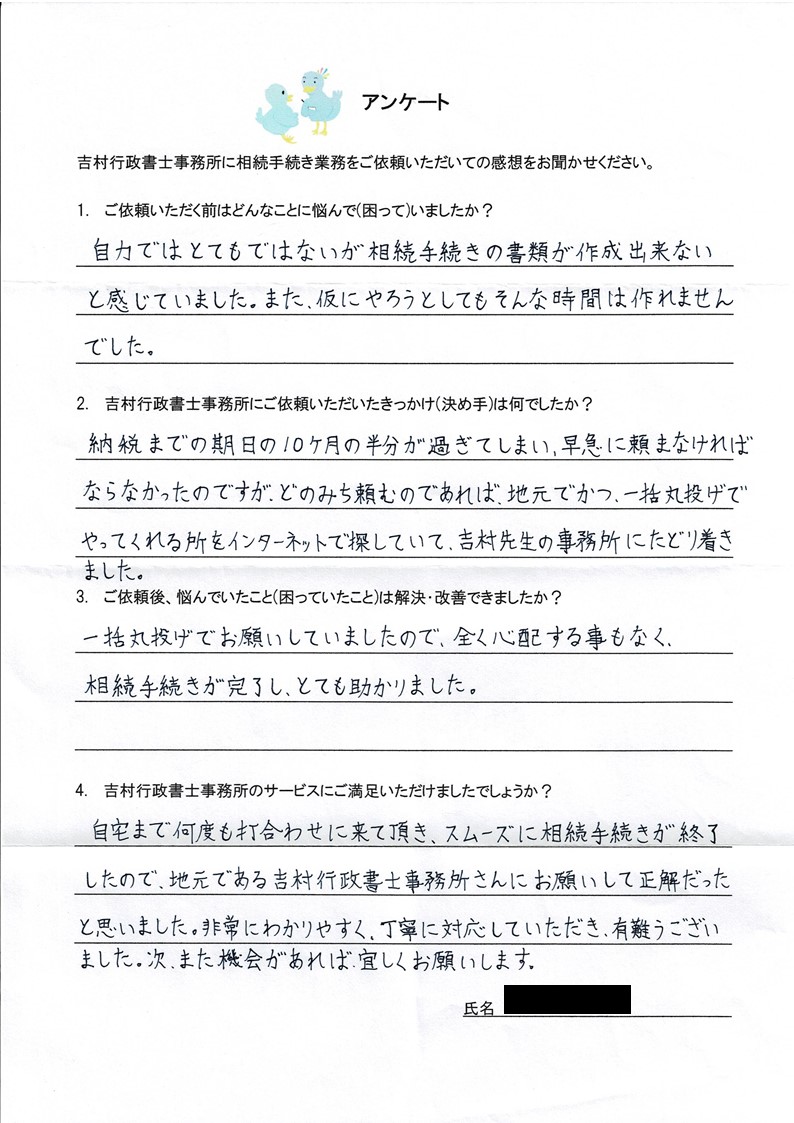 アンケート
吉村行政書士事務所に相続手続き業務をご依頼いただいての感想をお聞かせください。
1. ご依頼いただく前はどんなことに悩んで(困って)いましたか？
自力ではとてもではないが相続手続きの書類が作成出来ない
と感じていました。また、仮にやろうとしてもそんな時間は作れません
でした。
2. 吉村行政書士事務所にご依頼いただいたきっかけ(決め手)は何でしたか？
納税までの期日の10ケ月の半分が過ぎてしまい、早急に頼まなければ
ならなかったのですが、どのみち頼むのであれば、地元でかつ、一括丸投げで
やってくれる所をインターネットで探していて、吉村先生の事務所にたどり着き
ました。
3. ご依頼後、悩んでいたこと(困っていたこと)は解決・改善できましたか？
一括丸投げでお願いしていましたので、全く心配する事もなく、
相続手続きが完了し、とても助かりました。
4. 吉村行政書士事務所のサービスにご満足いただけましたでしょうか？
自宅まで何度も打合わせに来て頂き、スムーズに相続手続きが終了
したので、地元である吉村行政書士事務所さんにお願いして正解だった
と思いました。非常にわかりやすく、丁寧に対応していただき、有難うござい
ました。次、また機会があれば、宜しくお願いします。
氏名